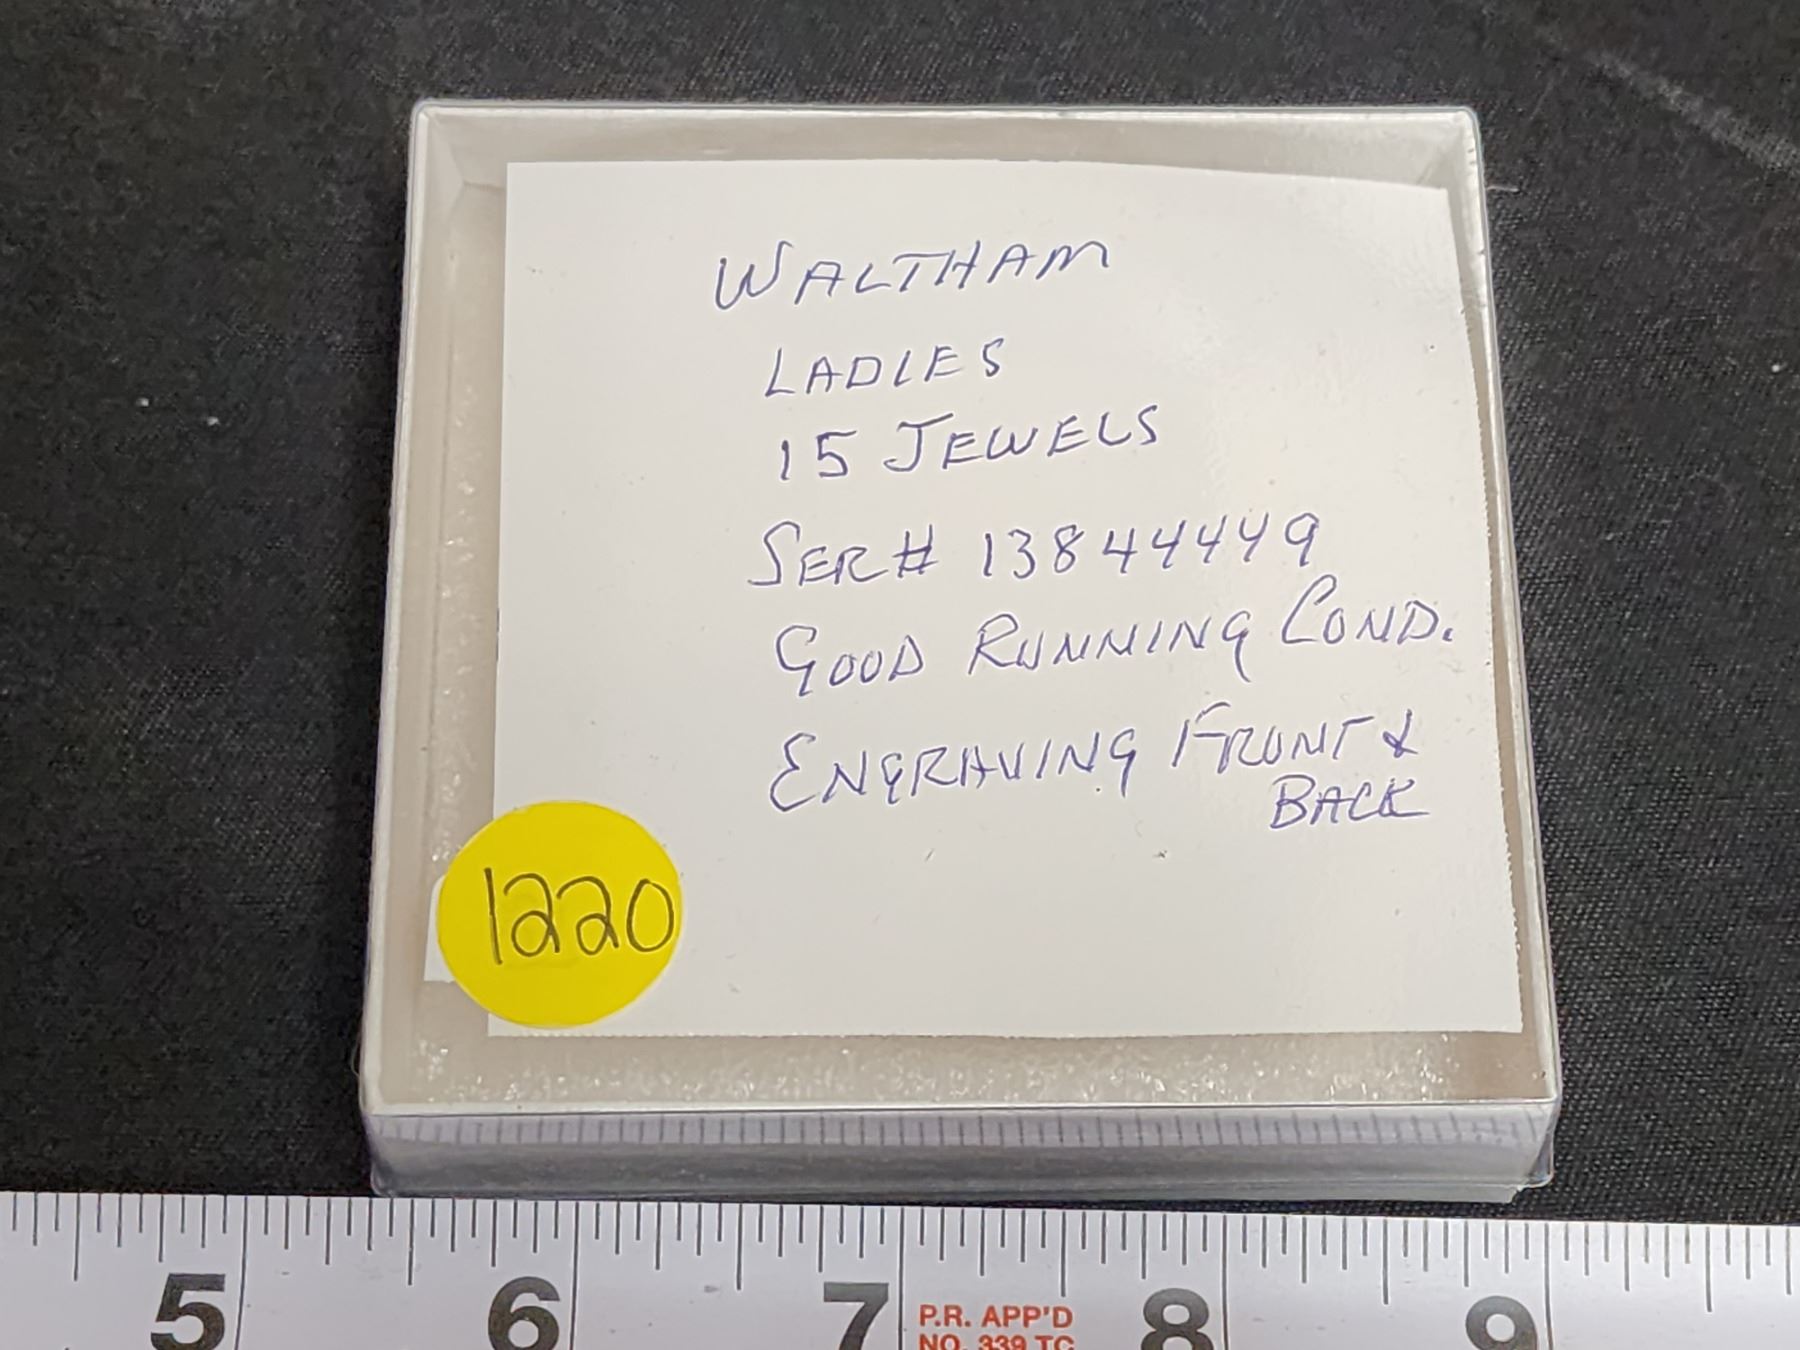 WALTHAM
LADIES
15 JEWELS
SER# 13844449
GOOD RUNNING COND.
ENGRAVING FRONT &
BACK
1220
5 6 7 8 9
P.R. APP'D
NO. 339 TC